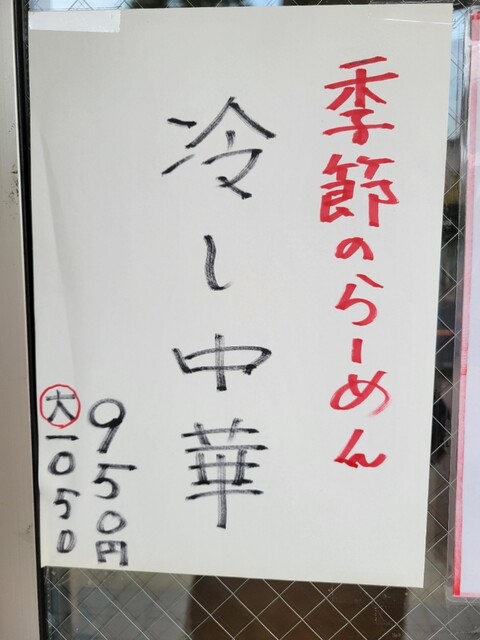 季節のらーめん
冷し中華
950円
大一050